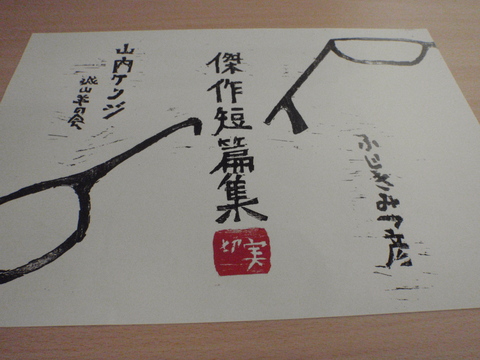 傑作短篇集
切実
ふじきみつ彦
山内ケンジ
城山羊の会